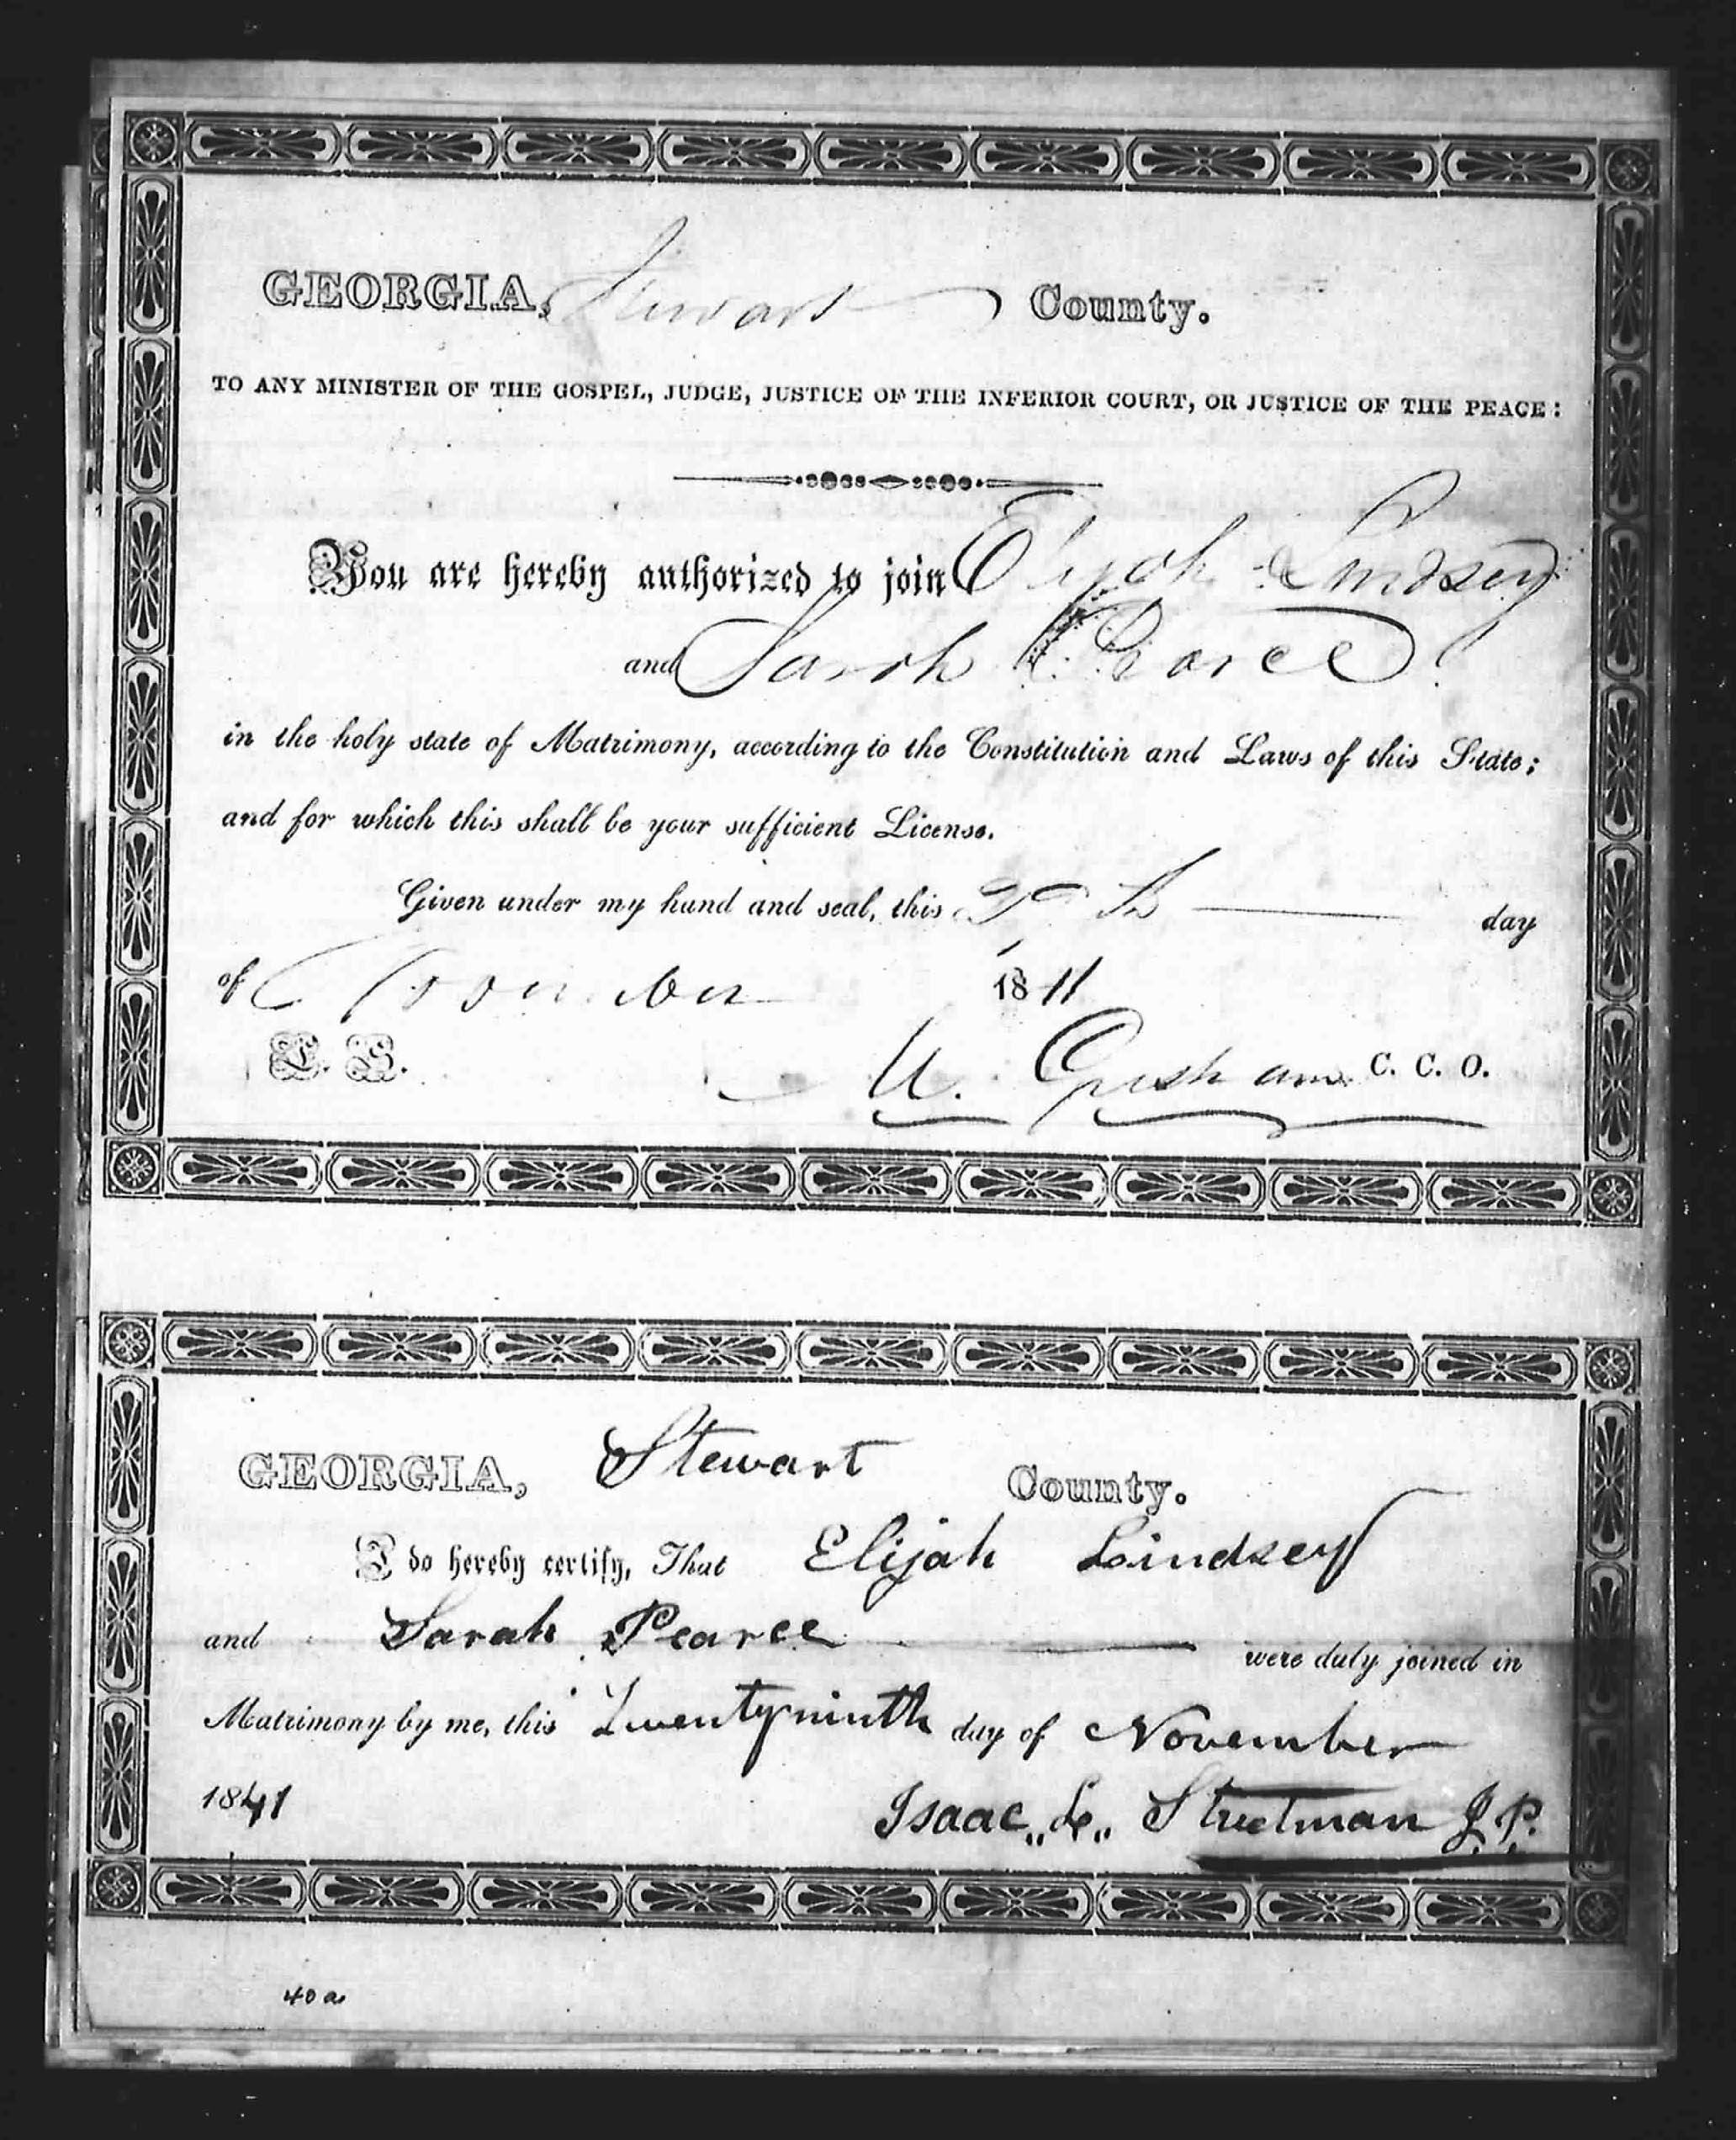 GEORGIA, Stewart County.
TO ANY MINISTER OF THE GOSPEL, JUDGE, JUSTICE OF THE INFERIOR COURT, OR JUSTICE OF THE PEACE:
You are hereby authorized to join Elijah Lindsey
and Sarah Pearce
in the holy state of Matrimony, according to the Constitution and Laws of this State;
and for which this shall be your sufficient License.
Given under my hand and seal, this day
of November 1841
L. S.
Gresham C. C. O.
GEORGIA, Stewart County.
I do hereby certify, That Elijah Lindsey
and Sarah Pearce were duly joined in
Matrimony by me, this Twentyninth day of November
1841
Isaac J. P.
40 a